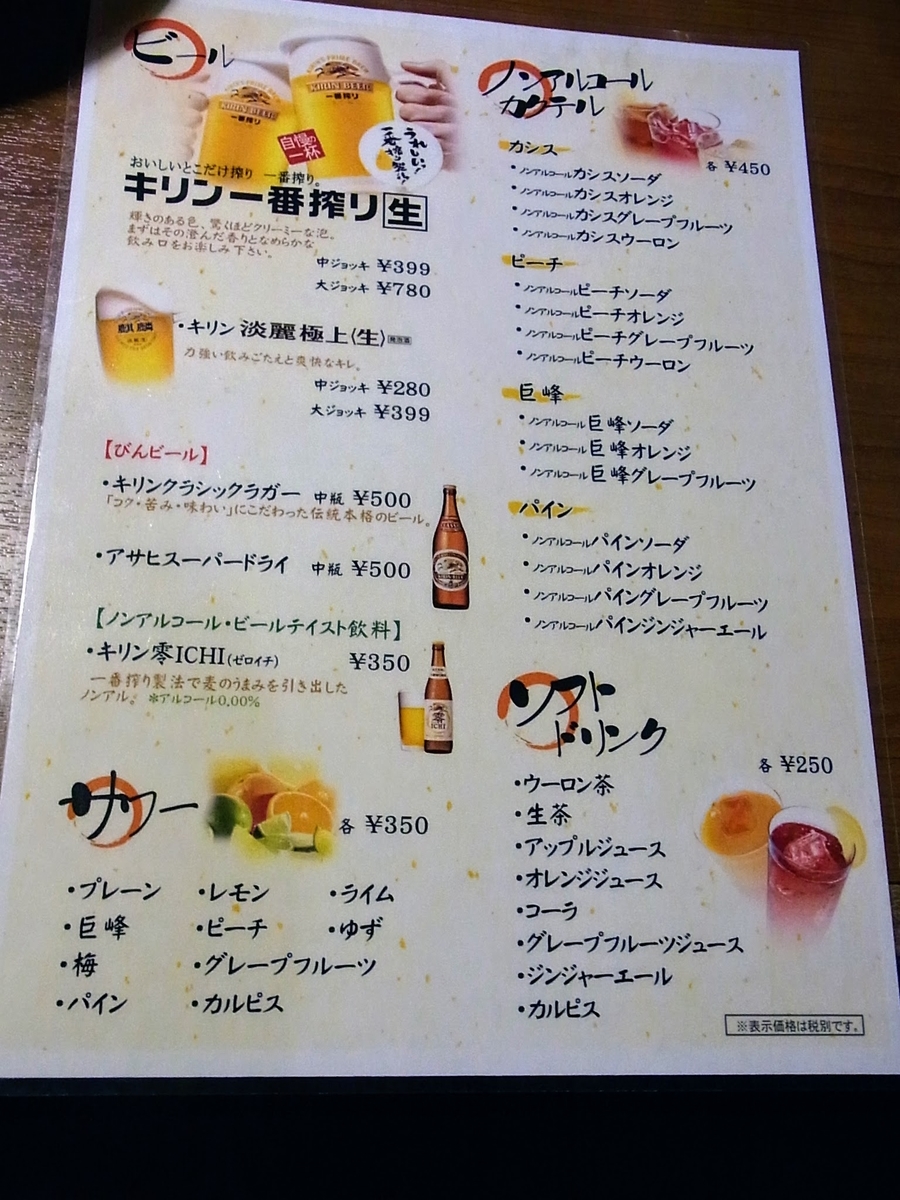 ビール
KIRIN BEER
一番搾り
KIRIN BEER
一番搾り
自慢の
一杯
うれしい!
一番搾り製法!
おいしいとこだけ搾り 一番搾り。
キリン一番搾り 生
輝きのある色、驚くほどクリーミーな泡。
まずはその澄んだ香りとなめらかな
飲み口をお楽しみ下さい。
中ジョッキ ¥399
大ジョッキ ¥780
麒麟
・キリン 淡麗極上〈生〉 発泡酒
力強い飲みごたえと爽快なキレ。
中ジョッキ ¥280
大ジョッキ ¥399
【びんビール】
・キリンクラシックラガー 中瓶 ¥500
「コク・苦み・味わい」にこだわった伝統本格のビール。
・アサヒスーパードライ 中瓶 ¥500
【ノンアルコール・ビールテイスト飲料】
・キリン零ICHI(ゼロイチ) ¥350
一番搾り製法で麦のうまみを引き出した
ノンアル。 ※アルコール0.00%
零
ICHI
サワー
各 ¥350
・プレーン ・レモン ・ライム
・巨峰 ・ピーチ ・ゆず
・梅 ・グレープフルーツ
・パイン ・カルピス
ノンアルコール
カクテル
各 ¥450
カシス
・ノンアルコールカシスソーダ
・ノンアルコールカシスオレンジ
・ノンアルコールカシスグレープフルーツ
・ノンアルコールカシスウーロン
ピーチ
・ノンアルコールピーチソーダ
・ノンアルコールピーチオレンジ
・ノンアルコールピーチグレープフルーツ
・ノンアルコールピーチウーロン
巨峰
・ノンアルコール巨峰ソーダ
・ノンアルコール巨峰オレンジ
・ノンアルコール巨峰グレープフルーツ
パイン
・ノンアルコールパインソーダ
・ノンアルコールパインオレンジ
・ノンアルコールパイングレープフルーツ
・ノンアルコールパインジンジャーエール
ソフト
ドリンク
各 ¥250
・ウーロン茶
・生茶
・アップルジュース
・オレンジジュース
・コーラ
・グレープフルーツジュース
・ジンジャーエール
・カルピス
※表示価格は税別です。